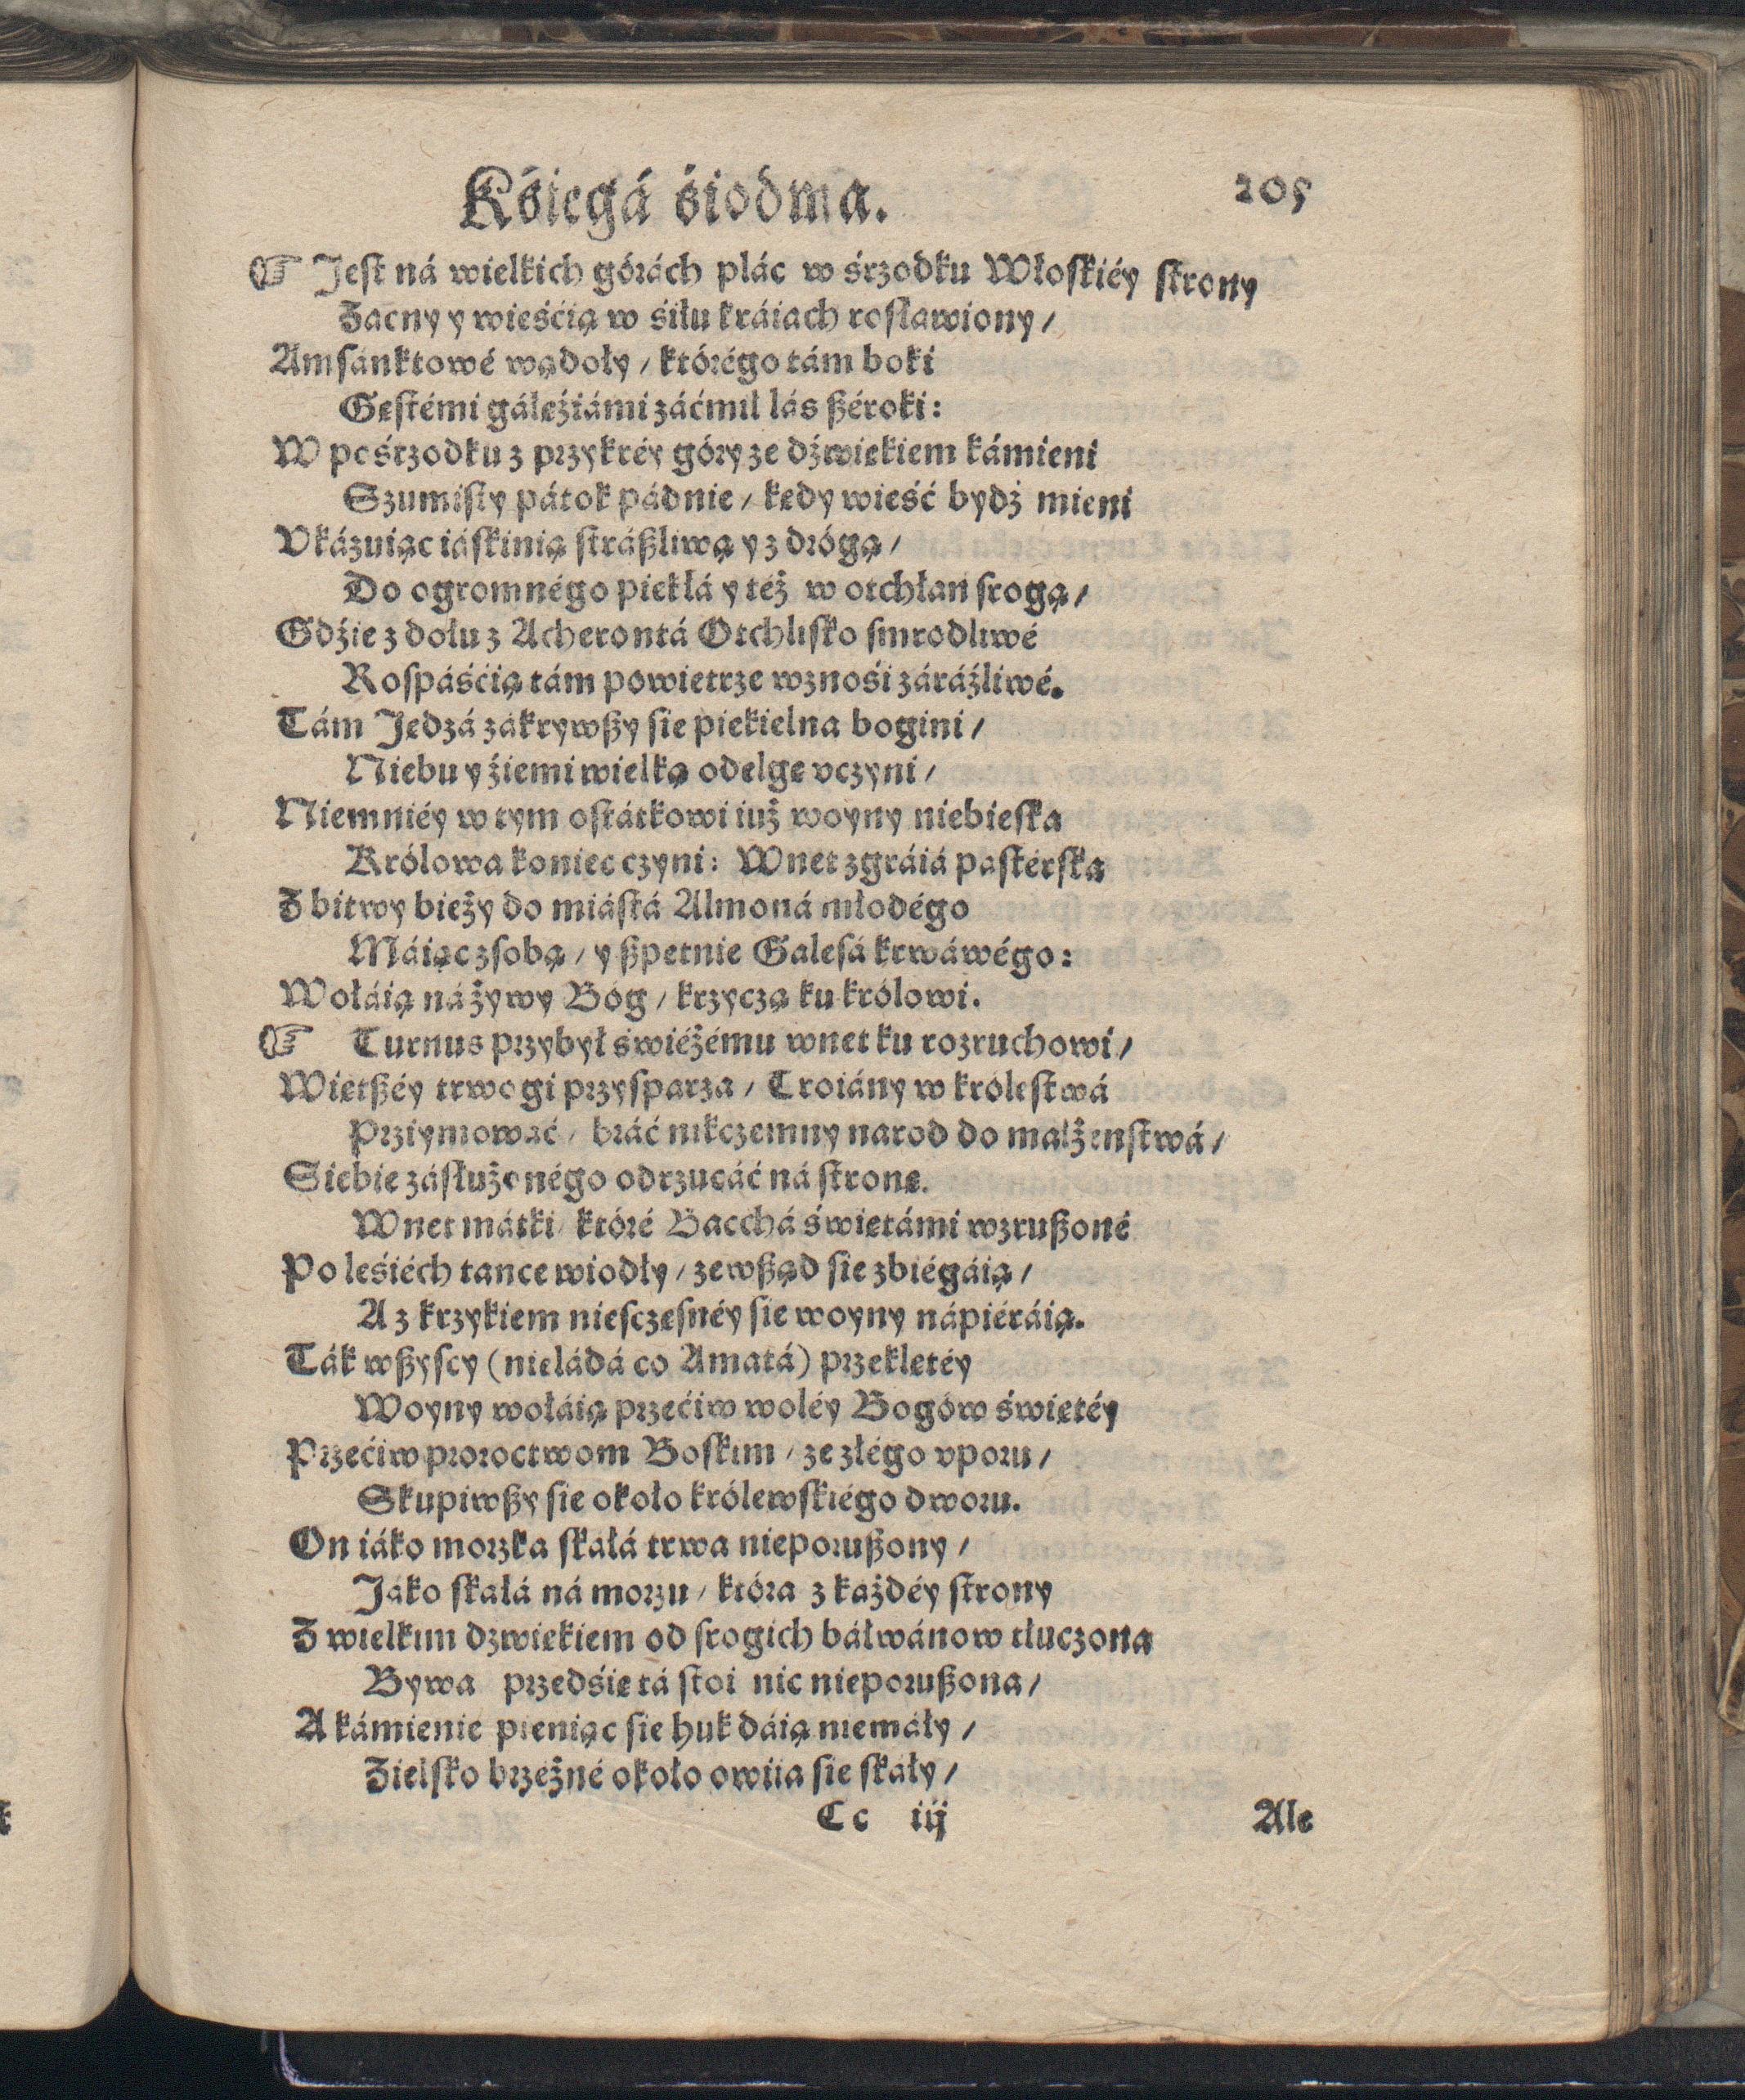 Kśięgá śiodma. 205
☞ Jeſt ná wielkich górách plác w śrzodku Włoſkiéy ſtrony
Zacny y wieśćią w śiłu kráiach roſławiony /
Amſánktowé wądoły / którégo tám boki
Gęſtémi gáłęźiámi záćmił lás ßéroki:
W pośrzodku z przykréy góry ze dźwiękiem kámieni
Szumiſty pátok pádnie / kędy wieść bydź mieni
Vkázuiąc iáſkinią ſtráßliwą y z drógą /
Do ogromnégo piekłá y też w otchłan ſrogą /
Gdźie z dołu z Acherontá Otchliſko ſmrodliwé
Roſpáśćią tám powietrze wznośi záráźliwé.
Tám Jędzá zákrywßy ſie piekielna bogini /
Niebu y źiemi wielką odelgę vczyni /
Niemniéy w tym oſtátkowi iuż woyny niebieſka
Królowa koniec czyni: Wnet zgráiá paſterſka
Z bitwy bieży do miáſtá Almoná młodégo
Máiąc z ſobą / y ßpetnie Galeſá krwáwégo:
Wołáią ná żywy Bóg / krzyczą ku królowi.
☞ Turnus przybył świéżému wnet ku rozruchowi /
Więtßéy trwogi przyſparza / Troiány w króleſtwá
Prziymować / bráć nikczemny narod do małżenſtwá /
Siebie záſłużonégo odrzucáć ná ſtronę.
Wnet mátki / któré Bacchá świętámi wzrußoné
Po leśiéch tance wiodły / zewßąd ſie zbiégáią /
A z krzykiem nieſczęſnéy ſie woyny nápiéráią.
Ták wßyſcy (nieládá co Amatá) przeklętéy
Woyny wołáią przećiw woléy Bogów świętéy
Przećiw proroctwom Boſkim / ze złégo vporu /
Skupiwßy ſie około królewſkiégo dworu.
On iáko morzka ſkałá trwa nieporußony /
Jáko ſkałá ná morzu / która z każdéy ſtrony
Z wielkim dzwiękiem od ſrogich báłwánow tłuczona
Bywa przedśię tá ſtoi nic nieporußona /
A kámienie pieniąc ſie huk dáią niemáły /
Zielſko brzeżné około owiia ſie ſkały /
Cc iij Ale